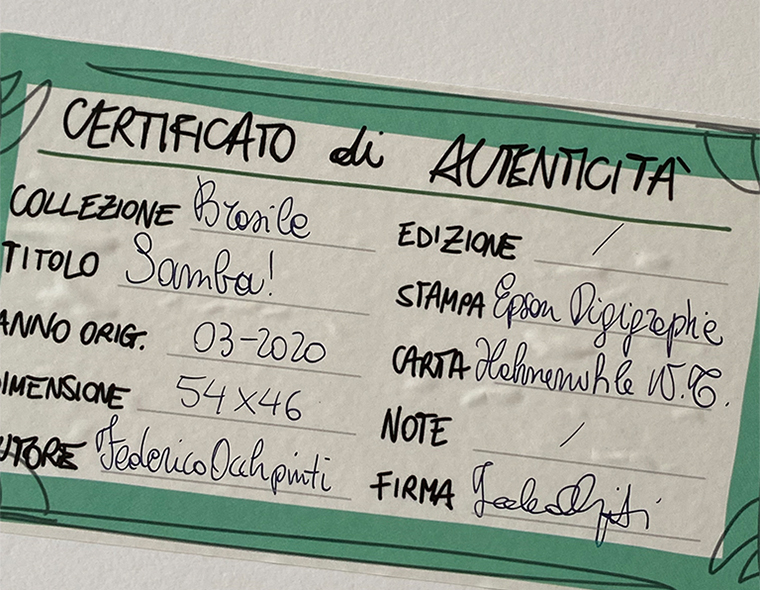 CERTIFICATO di AUTENTICITÀ
COLLEZIONE Brasile
TITOLO Samba!
ANNO ORIG. 03-2020
DIMENSIONE 54x46
AUTORE Federico Occhipinti
EDIZIONE /
STAMPA Epson Digigraphie
CARTA Hahnemuhle W.C.
NOTE /
FIRMA